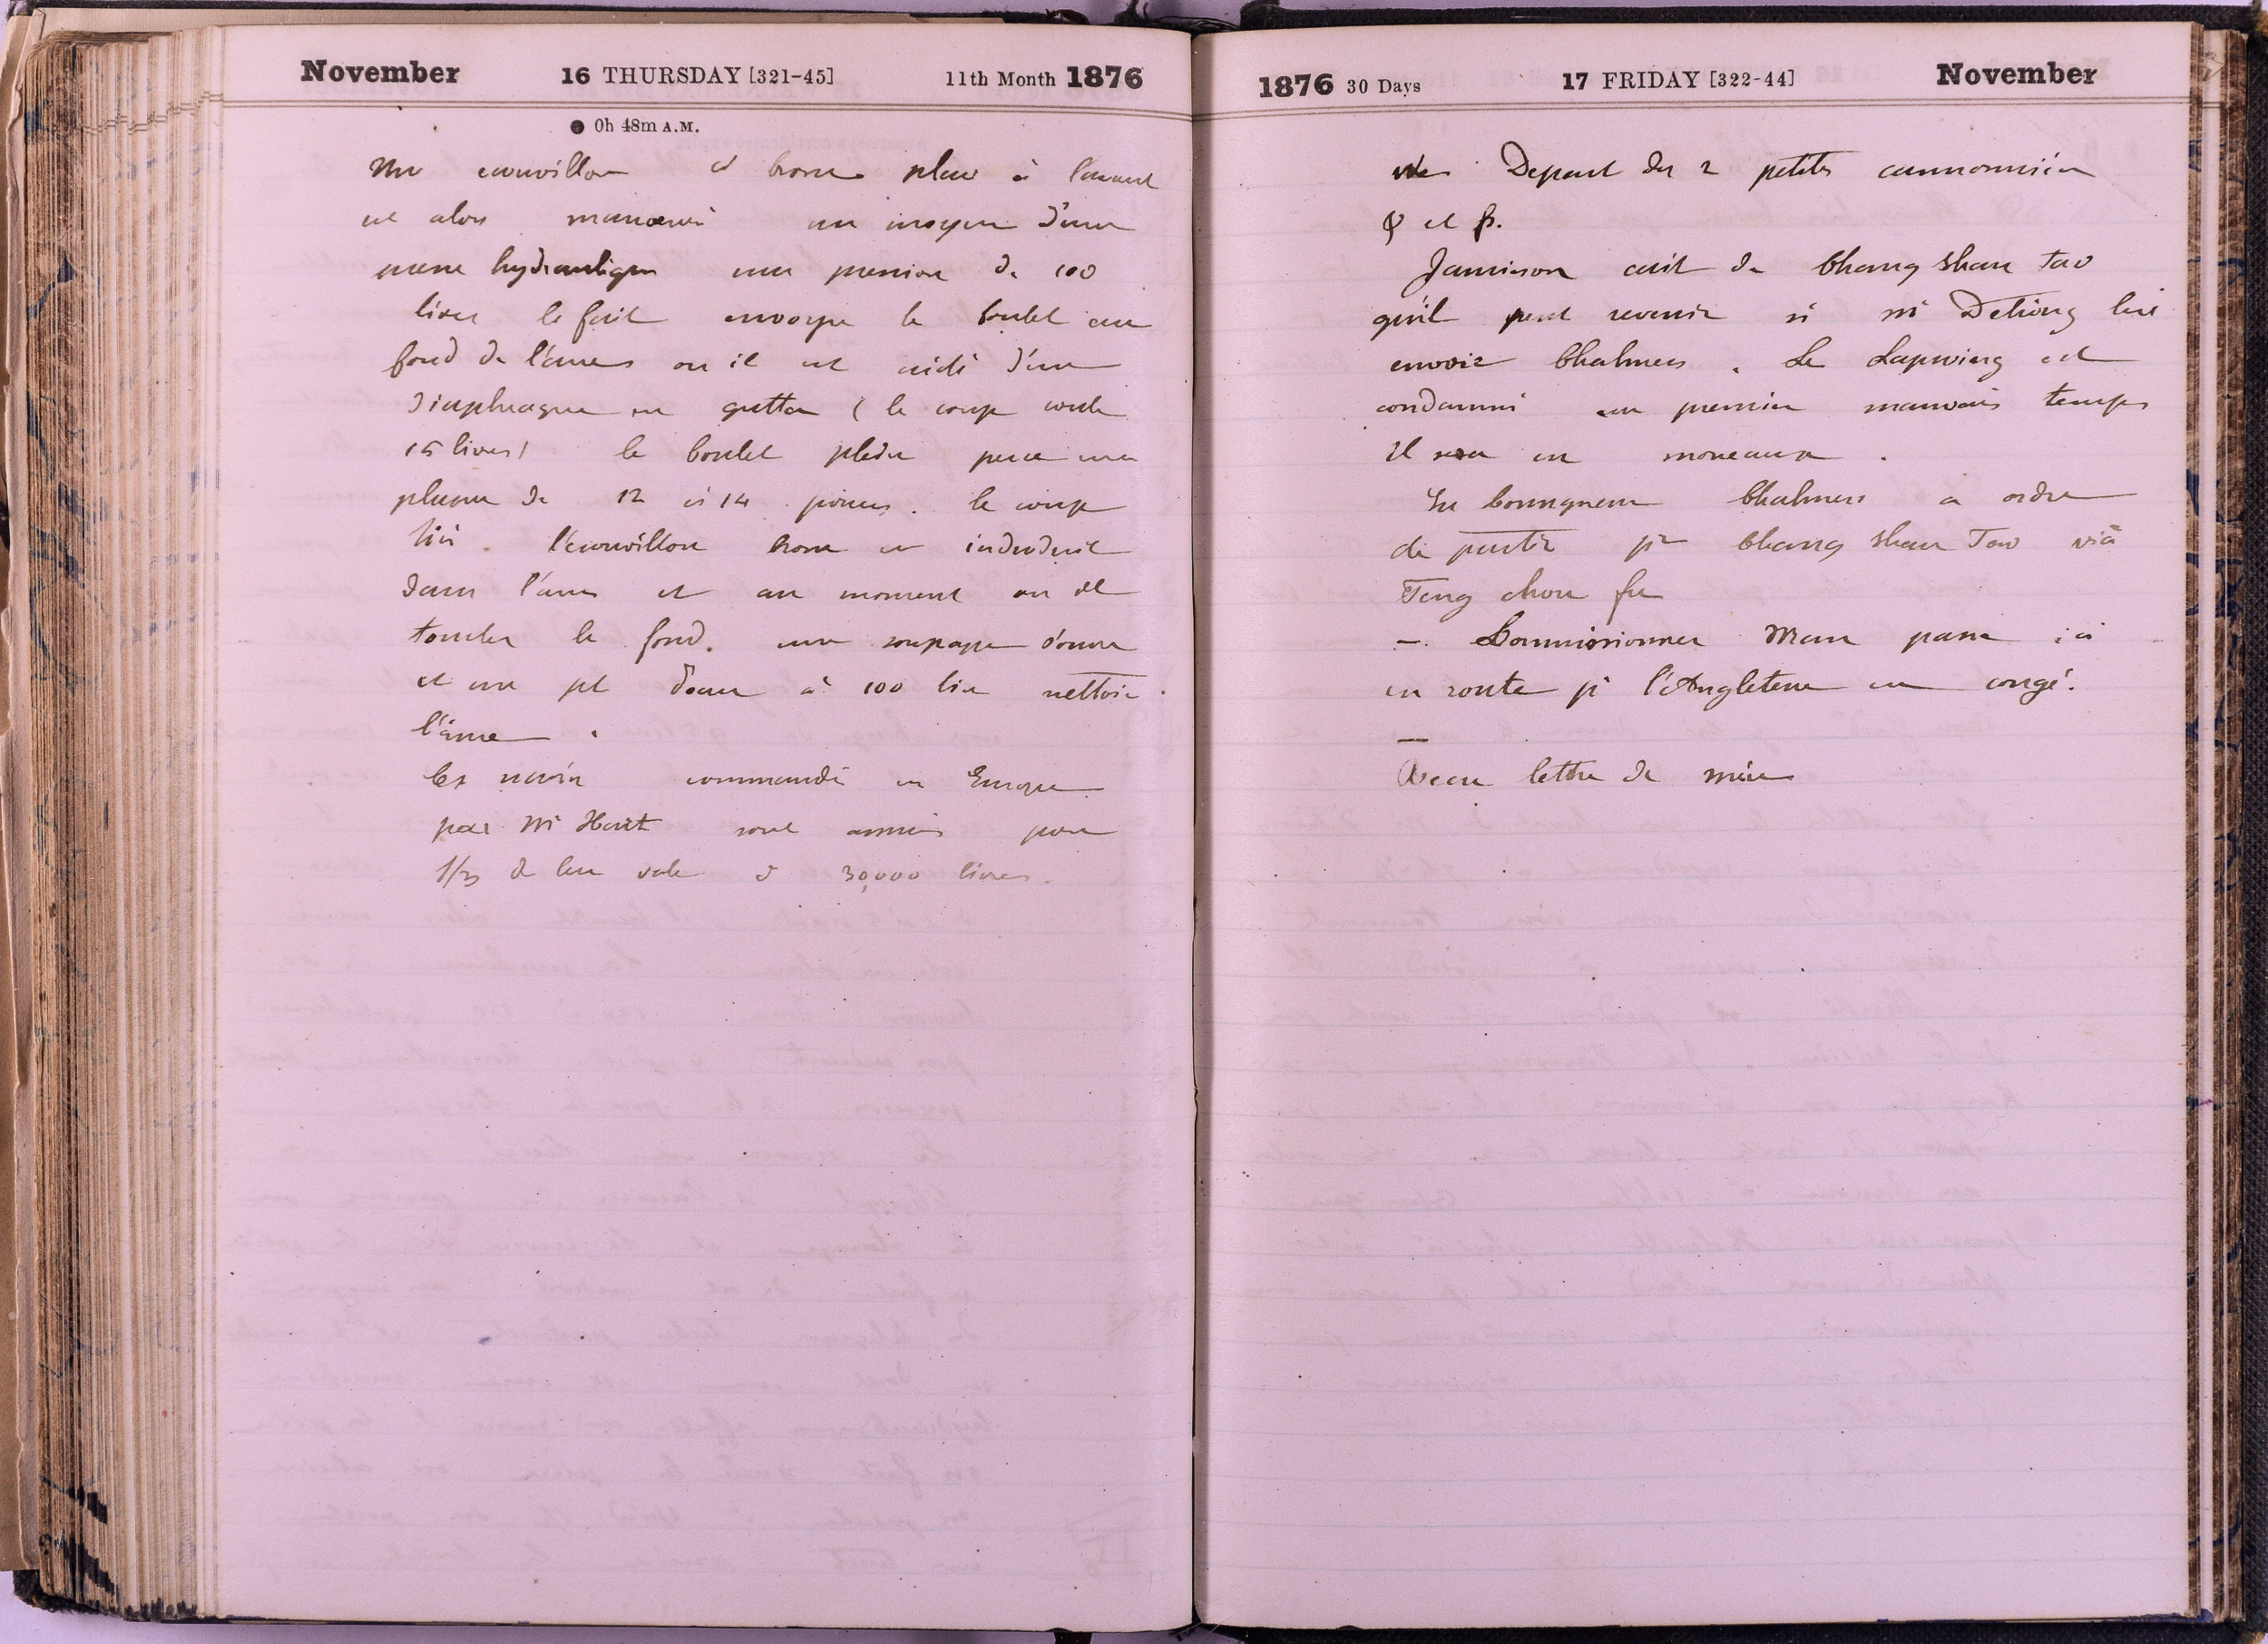 November 16 THURSDAY [321-45] 11th Month 1876
0h 48m A.M.
Un ecouvillon et brosse place à l'avant
est alors manœuvré au moyen d'une
hydraulique une pression de 100
livres le fait envoyer le boulet au
fond de l'âme ou il est aidé d'un
diaphragme en gutta (le coup coute
15 livres) le boulet plein perce une
plaque de 12 à 14 pouces. le coup
tiré. l'ecouvillon brosse est introduit
dans l'âme et au moment ou il
touche le fond. une soupape s'ouvre
et un jet d'eau à 100 liv nettoie
l'âme.
Ces navir commandé en Europe
par Mr Hart sont assurés pour
1/3 de leur vale 30,000 livres.
1876 30 Days 17 FRIDAY [322-44] November
Depart des 2 petites cannonnière
et β.
Jamieson ecrit de Chang Shan Tao
qu'il peut revenir si Mr Detring lui
envoie Chalmers. Le Lapwing est
condamné au premier mauvais temps
Il sera en morceaux.
En consequence Chalmers a ordre
de partir pr Chang Shan Tao viâ
Teng chou fu
—. Commissionner Man passe ici
en route pr l'Angleterre en congé.
—
Recu lettre de mère